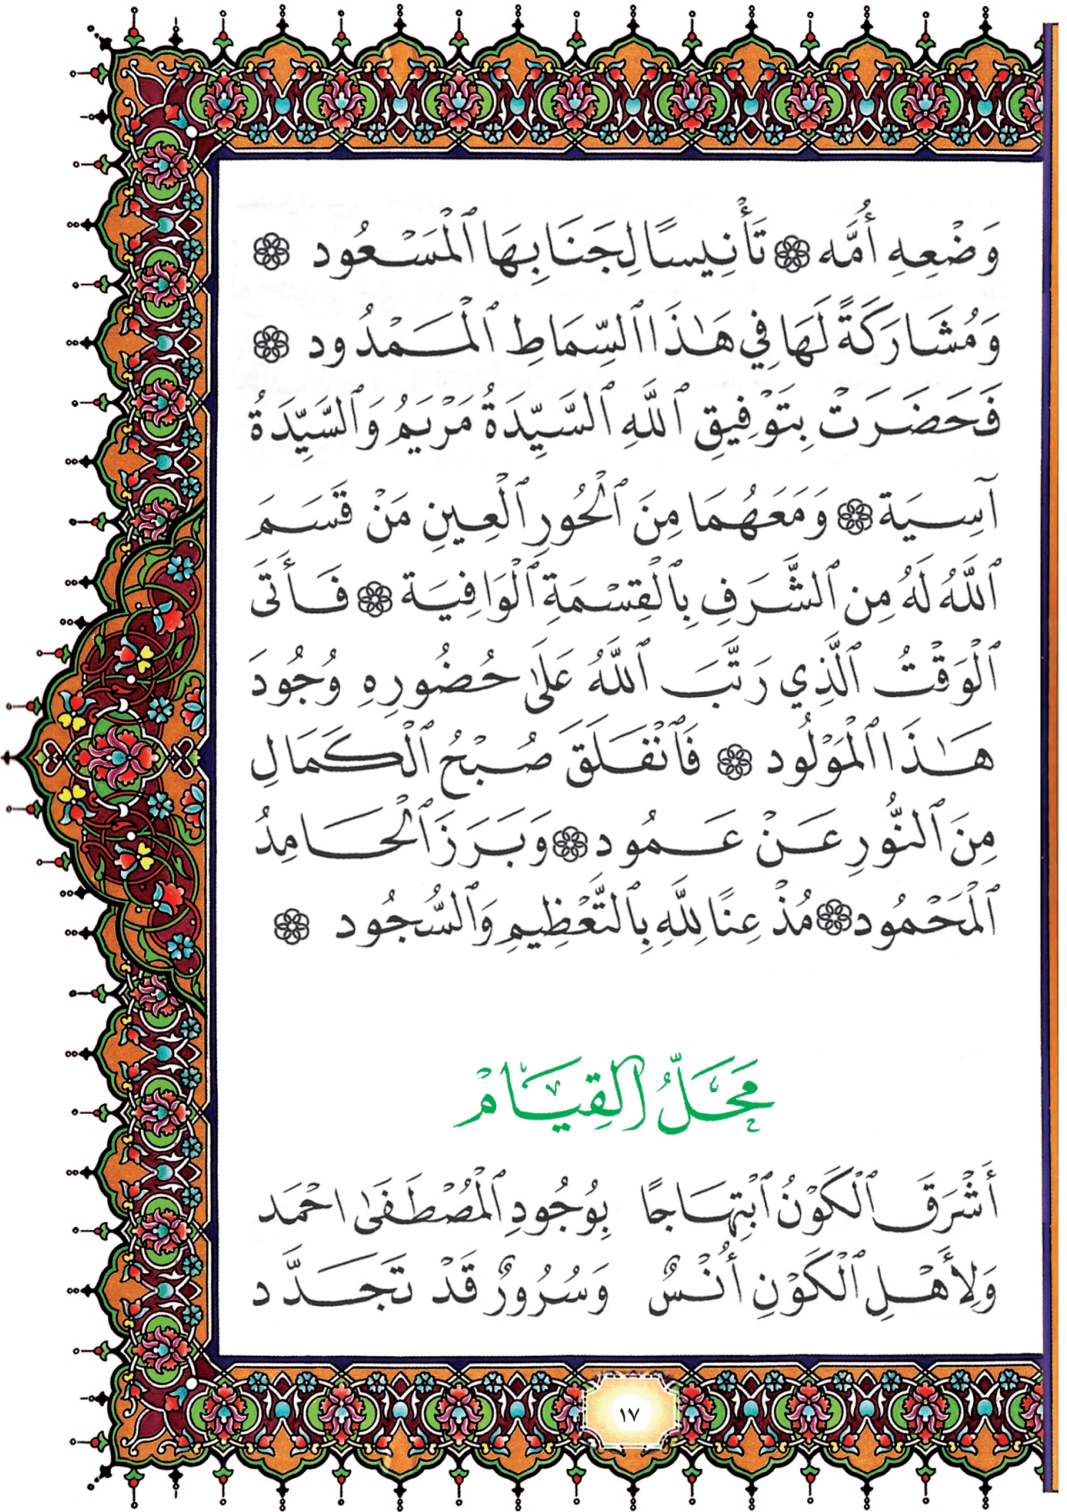 وَضْعِهِ أُمَّه ۞ تَأْنِيسًا لِجَنَابِهَا ٱلْمَسْعُود ۞
وَمُشَارَكَةً لَهَا فِي هَٰذَا ٱلسِّمَاطِ ٱلْمَمْدُود ۞
فَحَضَرَتْ بِتَوْفِيقِ ٱللَّهِ ٱلسَّيِّدَةُ مَرْيَمُ وَٱلسَّيِّدَةُ
آسِيَة ۞ وَمَعَهُمَا مِنَ ٱلْحُورِ ٱلْعِينِ مَنْ قَسَمَ
ٱللَّهُ لَهُ مِن ٱلشَّرَفِ بِٱلْقِسْمَةِ ٱلْوَافِيَة ۞ فَأَتَى
ٱلْوَقْتُ ٱلَّذِي رَتَّبَ ٱللَّهُ عَلَى حُضُورِهِ وُجُودَ
هَٰذَا ٱلْمَوْلُود ۞ فَٱنْفَلَقَ صُبْحُ ٱلْكَمَالِ
مِنَ ٱلنُّورِ عَنْ عَمُود ۞ وَبَرَزَ ٱلْحَامِدُ
ٱلْمَحْمُود ۞ مُذْعِنًا لِلَّهِ بِٱلتَّعْظِيمِ وَٱلسُّجُود ۞
مَحَلُّ ٱلْقِيَامْ
أَشْرَقَ ٱلْكَوْنُ ٱبْتِهَاجًا بِوُجُودِ ٱلْمُصْطَفَىٰ احْمَد
وَلِأَهْلِ ٱلْكَوْنِ أُنْسٌ وَسُرُورٌ قَدْ تَجَدَّد
١٧